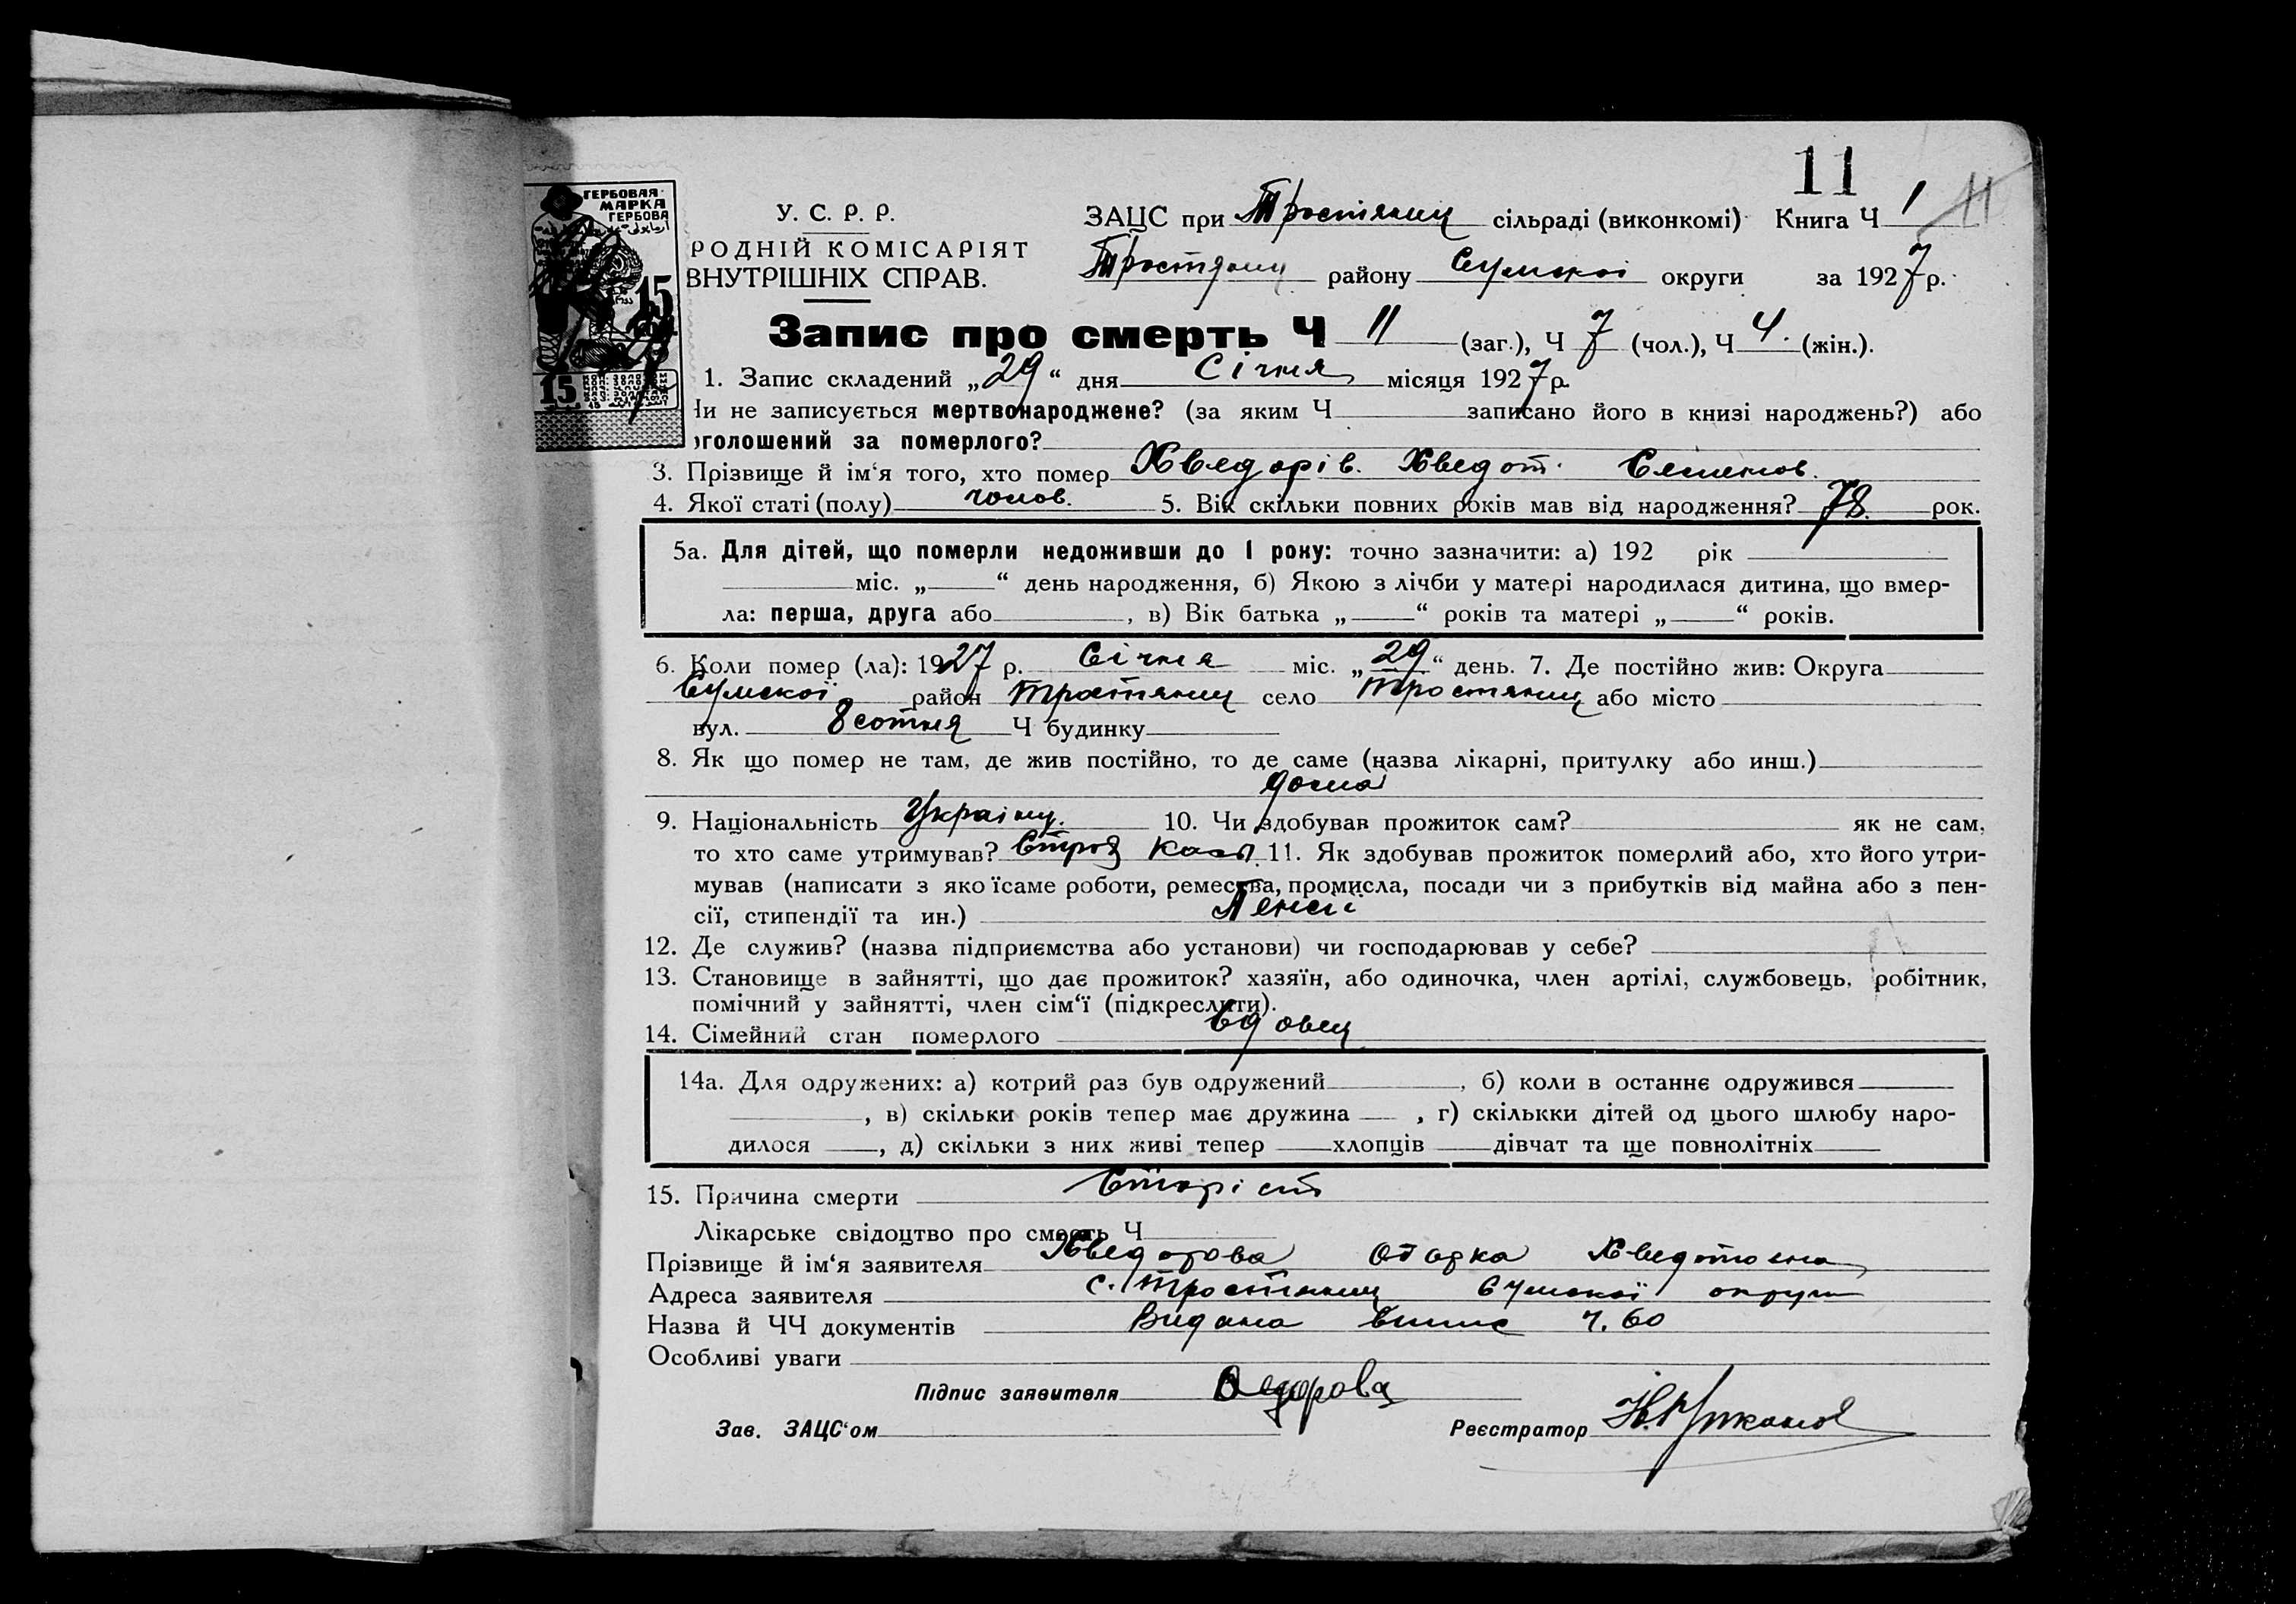 11
У. С. Р. Р.
РОДНІЙ КОМІСАРІЯТ
ВНУТРІШНІХ СПРАВ.
ГЕРБОВАЯ
МАРКА
ГЕРБОВА
15
15
ЗАЦС при Тростянец сільраді (виконкомі) Книга Ч 1 11
Тростянец району Сумської округи за 1927 р.
Запис про смерть Ч 11 (заг.), Ч 7 (чол.), Ч 4. (жін.).
1. Запис складений „29“ дня Січня місяця 1927 р.
Чи не записується мертвонароджене? (за яким Ч записано його в книзі народжень?) або
оголошений за померлого?
3. Прізвище й ім‘я того, хто помер Хведорів. Хведот. Семенов.
4. Якої статі (полу) чолов. 5. Вік скільки повних років мав від народження? 78. рок.
5а. Для дітей, що померли недоживши до 1 року: точно зазначити: а) 192 рік
міс. „ “ день народження, б) Якою з лічби у матері народилася дитина, що вмер-
ла: перша, друга або , в) Вік батька „ “ років та матері „ “ років.
6. Коли помер (ла): 1927 р. Січня міс. „29“ день. 7. Де постійно жив: Округа
Сумської район Тростянец село Тростянец або місто
вул. 8 сотня Ч будинку
8. Як що помер не там, де жив постійно, то де саме (назва лікарні, притулку або инш.)
дома
9. Національність Україну. 10. Чи здобував прожиток сам? як не сам,
то хто саме утримував? Страх Каси 11. Як здобував прожиток померлий або, хто його утри-
мував (написати з якоїсаме роботи, ремества, промисла, посади чи з прибутків від майна або з пен-
сії, стипендії та ин.) Пенсії
12. Де служив? (назва підприємства або установи) чи господарював у себе?
13. Становище в зайнятті, що дає прожиток? хазяїн, або одиночка, член артілі, службовець, робітник,
помічний у зайнятті, член сім‘ї (підкреслити).
14. Сімейний стан померлого вдовец
14а. Для одружених: а) котрий раз був одружений , б) коли в останнє одружився
, в) скільки років тепер має дружина , г) скількки дітей од цього шлюбу наро-
дилося , д) скільки з них живі тепер хлопців дівчат та ще повнолітніх
15. Причина смерти Старіст
Лікарське свідоцтво про смерть Ч
Прізвище й ім‘я заявителя Хведорова Хведотовна
Адреса заявителя с. Тростянец Сумської округи
Назва й ЧЧ документів Видана Випис ч. 60
Особливі уваги
Підпис заявителя Федорова
Зав. ЗАЦС‘ом Реєстратор